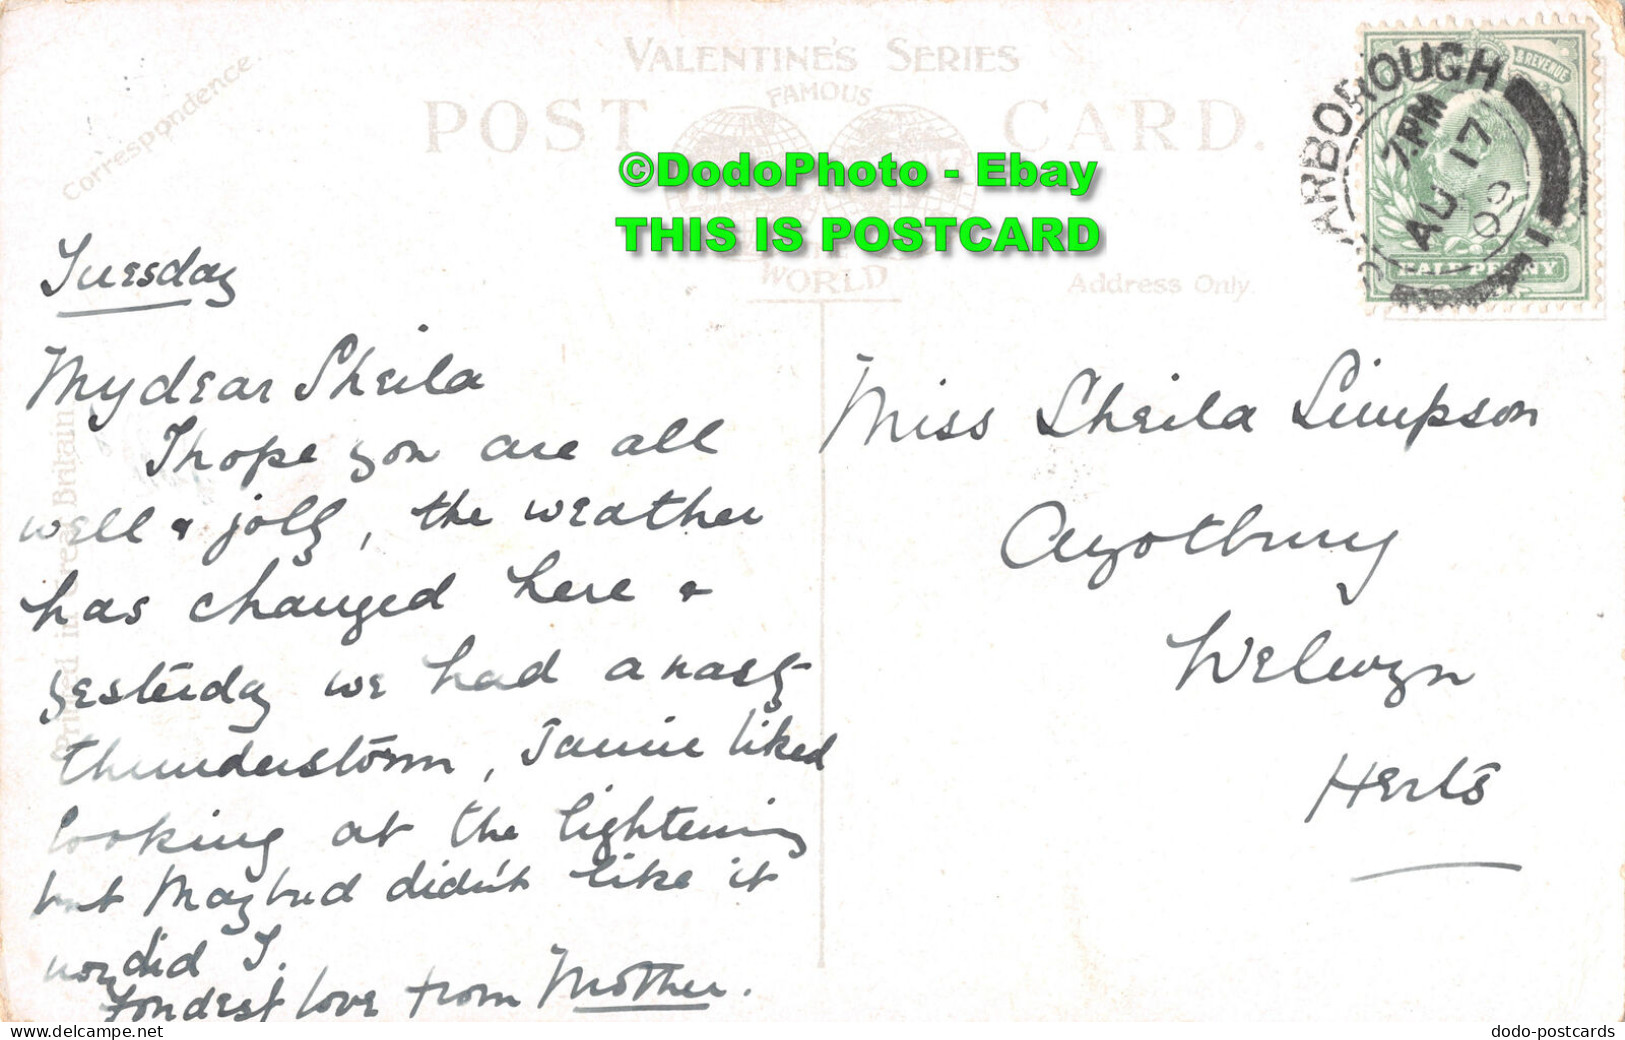 VALENTINE'S SERIES
FAMOUS
POST CARD.
WORLD
Correspondence.
Address Only.
Printed in Great Britain
©DodoPhoto - Ebay
THIS IS POSTCARD
SCARBOROUGH
7.PM
AU 17
09
& REVENUE
HALFPENNY
Tuesday
My dear Sheila
I hope you are all
well & jolly, the weather
has changed here &
yesterday we had a nasty
thunderstorm, Jamie liked
looking at the lightening
but Maybud didn't like it
nor did I.
Fondest love from Mother.
Miss Sheila Simpson
Ayotbury
Welwyn
Herts
delcampe.net
dodo-postcards